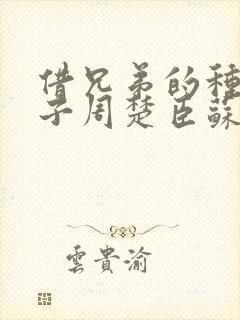 借兄弟的種
子周楚臣蘇
雲貴渝